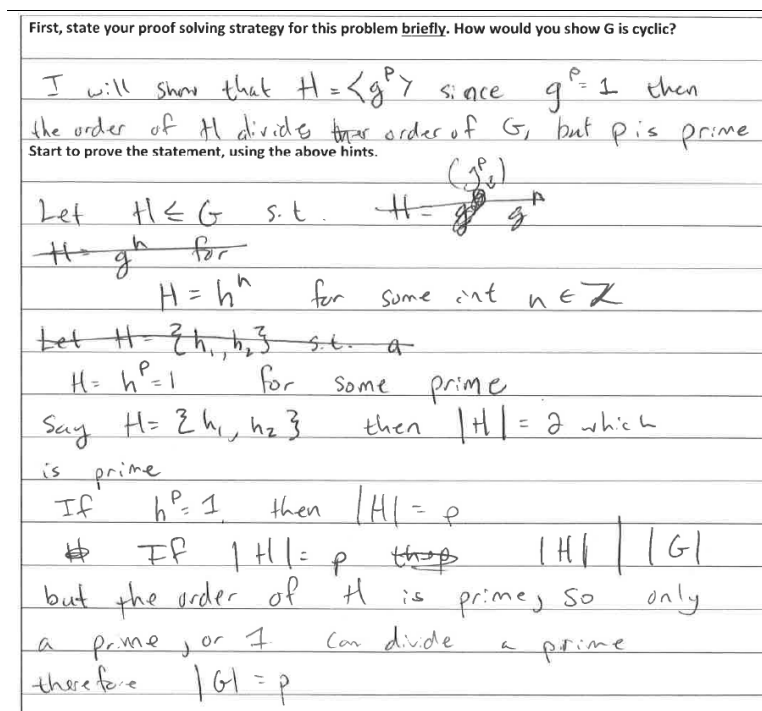 First, state your proof solving strategy for this problem briefly. How would you show G is cyclic?
I will show that H = <g^p> since g^p = 1 then
the order of H divides order of G, but p is prime
Start to prove the statement, using the above hints.
Let H ≤ G s.t. H = g^n
H = g^n for
H = h^n for some int n ∈ Z
Let H = {h₁, h₂} s.t. a
H = h^p = 1 for some prime
Say H = {h₁, h₂} then |H| = 2 which
is prime
If h^p = 1 then |H| = p
If |H| = p |H| | |G|
but the order of H is prime, so only
a prime, or 1 can divide a prime
therefore |G| = p